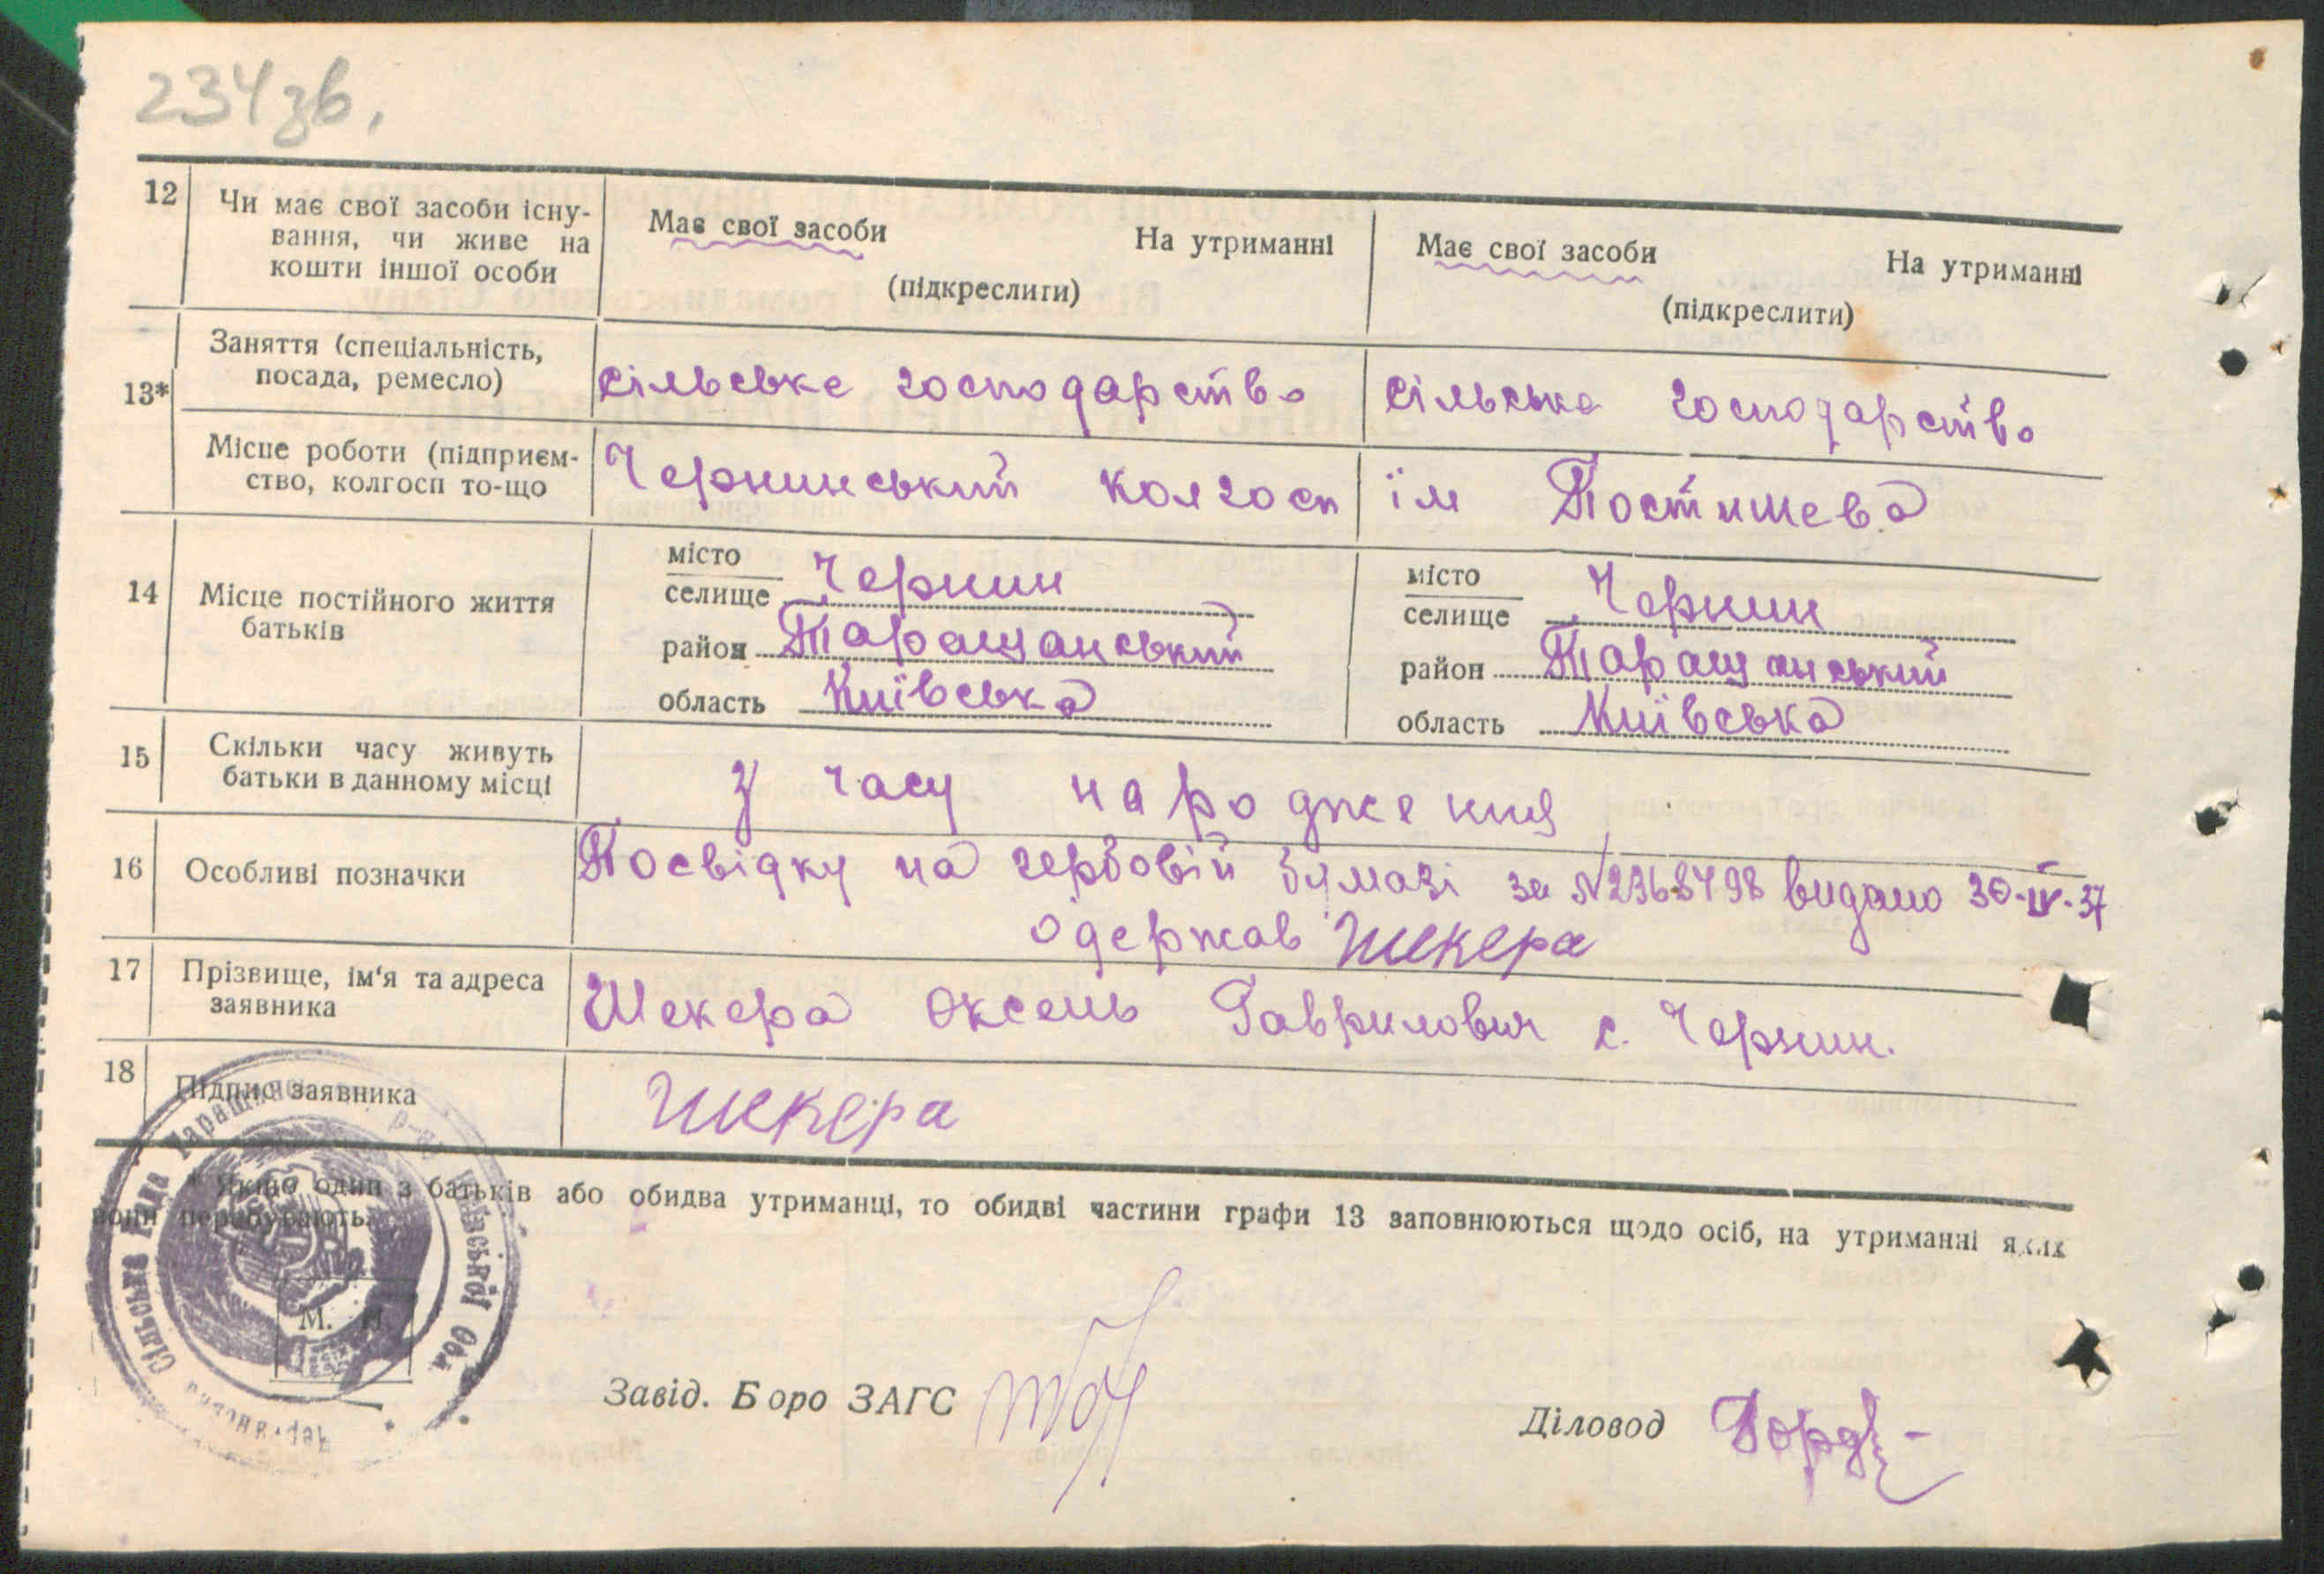 234зв.
12 Чи має свої засоби існу-
вання, чи живе на
кошти іншої особи
Має свої засоби На утриманні
(підкреслити)
Має свої засоби На утриманні
(підкреслити)
13*
Заняття (спеціальність,
посада, ремесло)
сільське господарство
сільське господарство
Місце роботи (підприєм-
ство, колгосп то-що
Чернинський колгосп ім Постишева
14 Місце постійного життя
батьків
місто
селище Чернин
район Таращанський
область Київська
місто
селище Чернин
район Таращанський
область Київська
15 Скільки часу живуть
батьки в данному місці
З часу народження
16 Особливі позначки
Посвідку на гербовій бумазі за №2368498 видано 30-IV-37
одержав Шекера
17 Прізвище, ім'я та адреса
заявника
Шекера Оксень Гаврилович с. Чернин.
18 Підпис заявника
Шекера
* Якщо один з батьків або обидва утриманці, то обидві частини графи 13 заповнюються щодо осіб, на утриманні яких
вони перебувають.
Сільська Рада Таращанськ р-ну Київської Обл
М. П.
Завід. Боро ЗАГС
Діловод